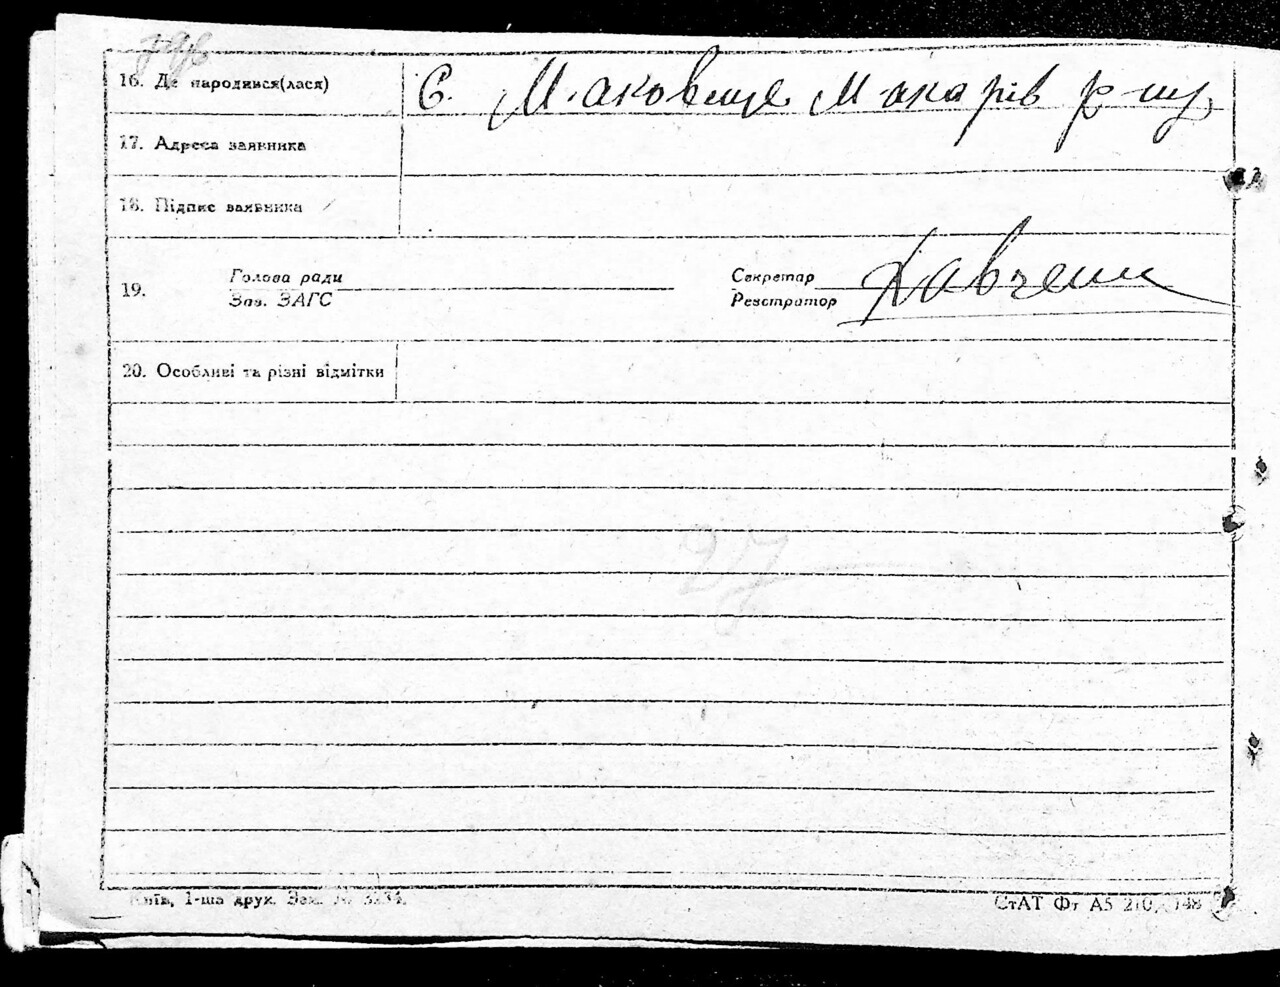 16. Де народився(лася) С. Маковище Макарів р-ну
17. Адреса заявника
18. Підпис заявника
19. Голова ради Секретар
Зав. ЗАГС Реєстратор
20. Особливі та різні відмітки
27
Київ, 1-ша друк. Зам. № 3234.
СтАТ Фт А5 210 148